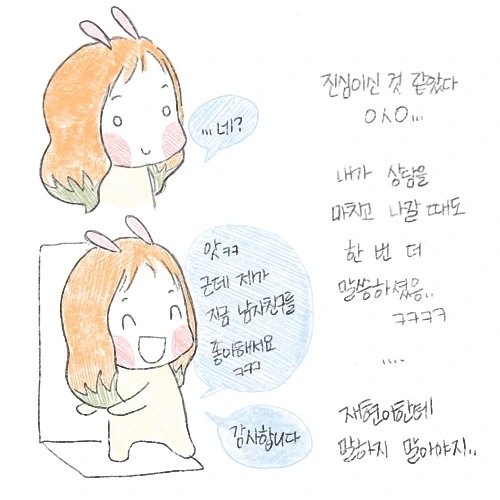 ...네?
진심이신 것 같았다
ㅇㅅㅇ...
내가 상담을
마치고 나갈 때도
한 번 더
말씀하셨음..
ㅋㅋㅋㅋ
....
앗ㅋㅋ
근데 제가
지금 남자친구를
좋아해서요
ㅋㅋㅋ
감사합니다
재현이한테
말하지 말아야지..